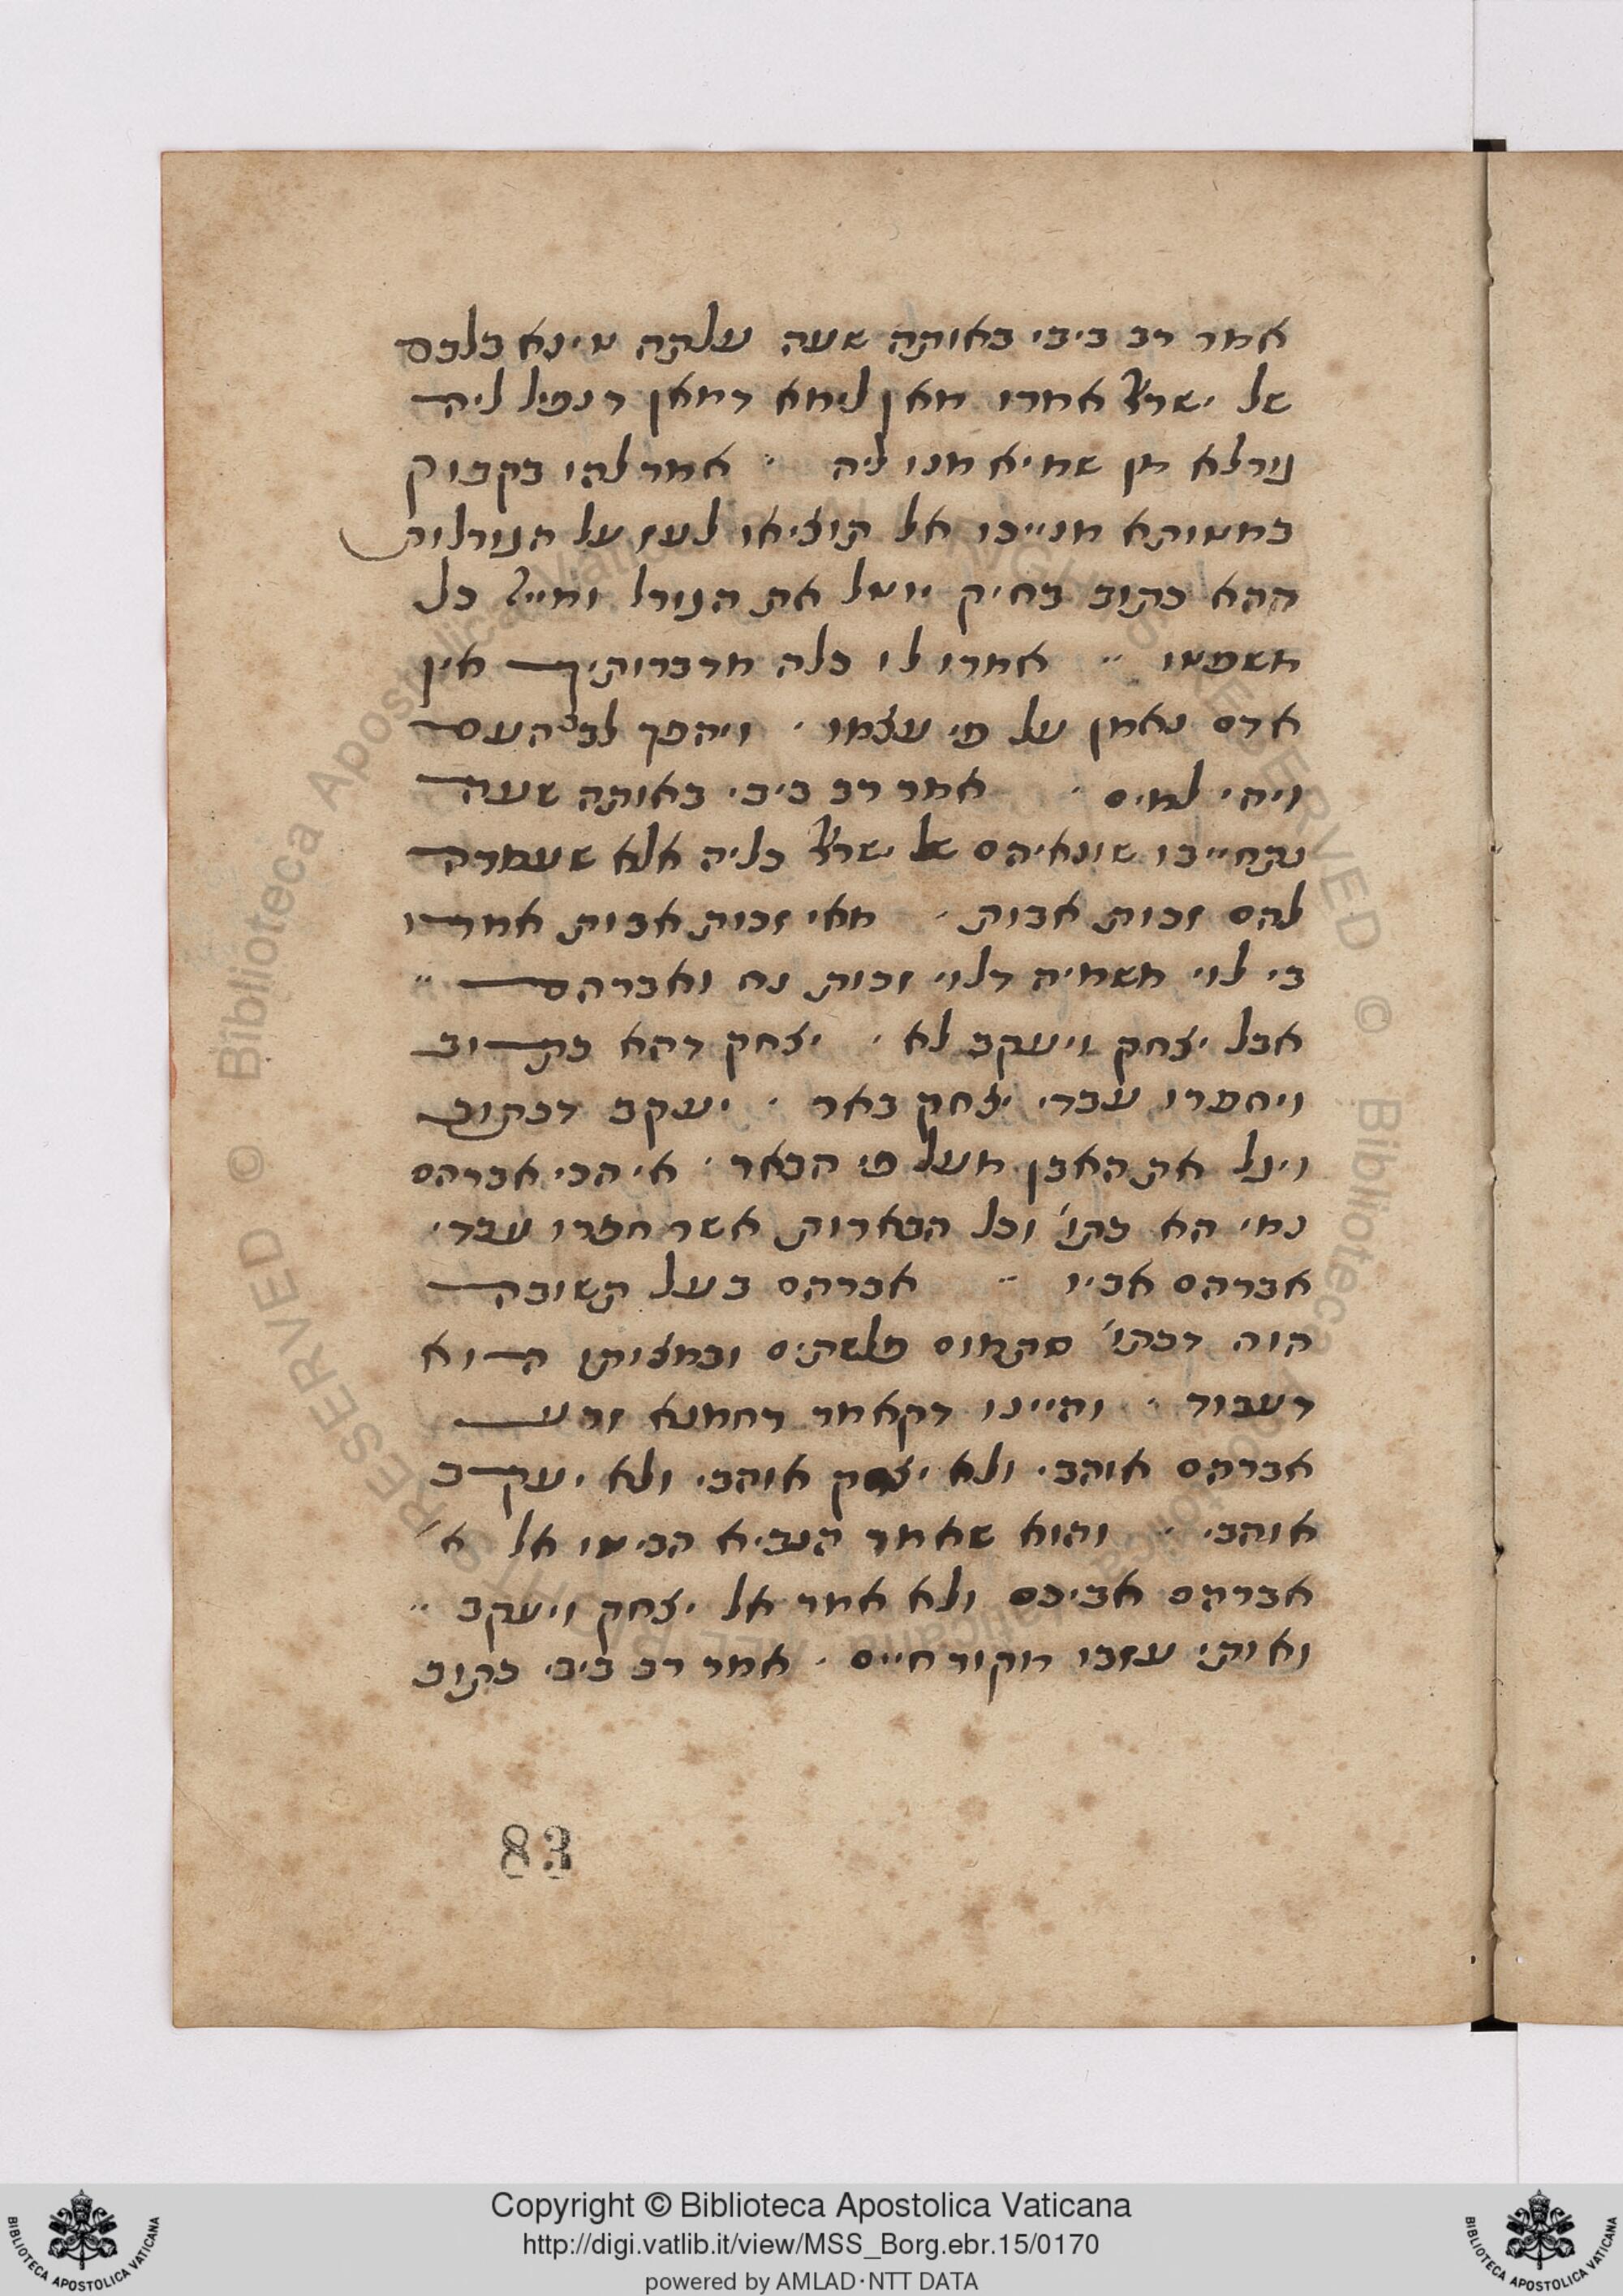 אמר רב ביבי באותה שעה עלתה טינא בלבם
של ישר' אמרו מאן לימא דמאן דנפיל ליה
גורלא מן שמיא מנו ליה · אמר להו בקבוק
במטותא מנייכו אל תוציאו לעז על הגורלות
דהא כתוב בחיק יוטל את הגורל ומיי'י כל
משפטו ·· אמרו לו כלה מדברותיך אין
אדם נאמן על פי עצמו · ויהפך לב העם
ויהי למים · אמר רב ביבי באותה שעה
נתחייבו שונאיהם של ישר' כליה אלא שעמדה
להם זכות אבות · מאי זכות אבות אמרו
בי לוי משמיה דלוי זכות נח ואברהם ··
אבל יצחק ויעקב לא · יצחק דהא כתוב
ויחפרו עבדי יצחק באר · יעקב דכתוב
ויגל את האבן מעל פי הבאר · אי הכי אברהם
נמי הא כתו' וכל הבארות אשר חפרו עבדי
אברהם אביו ·· אברהם בעל תשובה
הוה דכתו' סתמום פלשתים ובמצותו הוא
דעבוד · והיינו דקאמר רחמנא זרע
אברהם אוהבי ולא יצחק אוהבי ולא יעקב
אוהבי · והוא שאמר הנביא הביטו אל א'
אברהם אביכם ולא אמר אל יצחק ויעקב ··
ואותי עזבו מקור חיים · אמר רב ביבי כתוב
83
Copyright © Biblioteca Apostolica Vaticana
http://digi.vatlib.it/view/MSS_Borg.ebr.15/0170
powered by AMLAD·NTT DATA